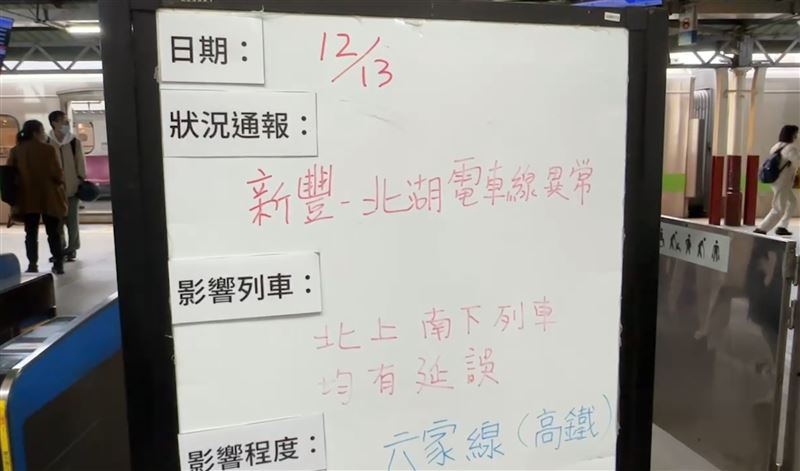 日期： 12/13
狀況通報：
新豐-北湖電車線異常
影響列車：
北上 南下列車
均有延誤
影響程度： 六家線(高鐵)